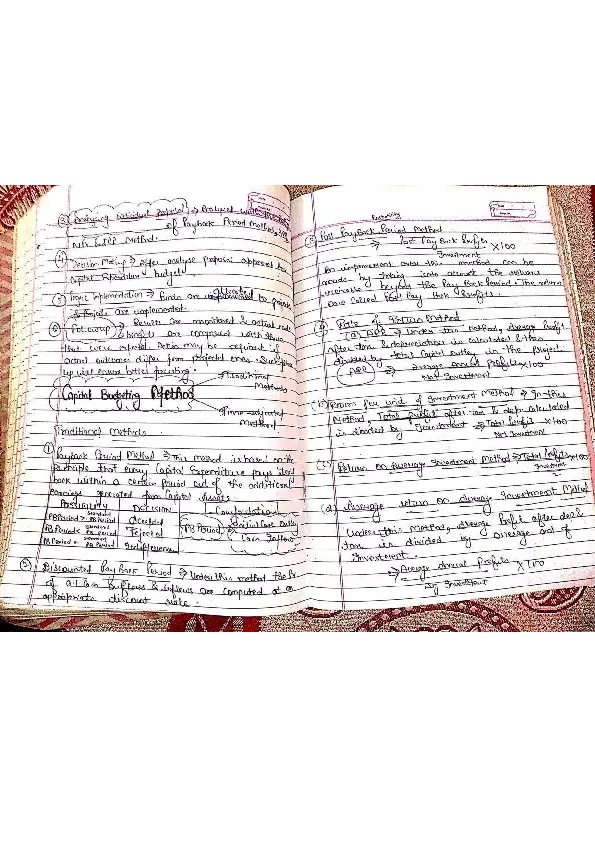 ③ Analysing Individual Proposal → Analysed using
of Payback Period Methods,
Method.
④ Decision Making → After analyse proposal approved in
Capital Expenditure budget
⑤ Project Implementation → Funds are allocated to projects
& projects are implemented.
⑥ Follow up → Results are monitored & actual costs
& benefits are compared with those
that were expected. Action may be required if
actual outcomes differ from projected ones. Such follow
up will ensure better forecasting.
Capital Budgeting Method
→ Traditional Methods
→ Time-adjusted Method
Traditional Methods
① Payback Period Method → This method is based on the
principle that every Capital Expenditure pays itself
back within a certain period out of the additional
earnings generated from Capital Assets.
POSSIBILITY | DECISION
PB Period > standard PB Period | Accepted
PB Period < standard PB period | Rejected
PB Period = standard PB Period | Indifference
Computation
PB Period → Initial Cash Outlay
Cash Inflow
② Discounted Pay Back Period → Under this method the PV
of all Cash outflows & inflows are computed at an
appropriate discount rate.
Post PayBack Period Method
→ Post Pay Back Profits X100
Investment
An improvement over this method can be
made by taking into account the returns
receivable beyond the Pay Back Period. The return
are called Post Pay back Profits.
Rate of Return Method
(a) ARR → Under this Method, Average Profit
after tax & depreciation is calculated & then
divided by total Capital outlay in the project.
ARR → Average Annual Profits X100
Net Investment
(b) Return Per unit of Investment Method → In this
Method, Total profit after tax & dep calculated
is divided by Investment → Total Profit X100
Net Investment
(c) Return on Average Investment Method → Total Profits X100
Investment
2
(d) Average return on Average Investment Method
Under this Method, average Profit after dep &
tax is divided by average amt of
Investment.
→ Average Annual Profits X100
Avg Investment